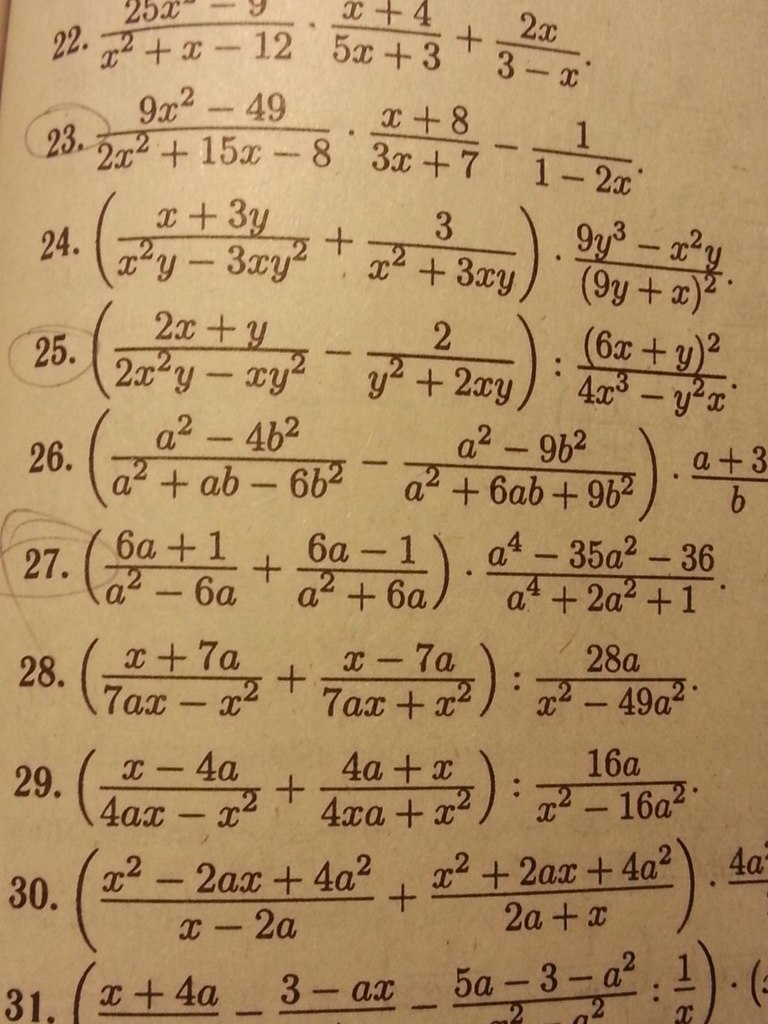 22. (25x² − 9)/(x² + x − 12) · (x + 4)/(5x + 3) + 2x/(3 − x).
23. (9x² − 49)/(2x² + 15x − 8) · (x + 8)/(3x + 7) − 1/(1 − 2x).
24. ((x + 3y)/(x²y − 3xy²) + 3/(x² + 3xy)) · (9y³ − x²y)/(9y + x)².
25. ((2x + y)/(2x²y − xy²) − 2/(y² + 2xy)) : (6x + y)²/(4x³ − y²x).
26. ((a² − 4b²)/(a² + ab − 6b²) − (a² − 9b²)/(a² + 6ab + 9b²)) · (a + 3)/b
27. ((6a + 1)/(a² − 6a) + (6a − 1)/(a² + 6a)) · (a⁴ − 35a² − 36)/(a⁴ + 2a² + 1).
28. ((x + 7a)/(7ax − x²) + (x − 7a)/(7ax + x²)) : 28a/(x² − 49a²).
29. ((x − 4a)/(4ax − x²) + (4a + x)/(4xa + x²)) : 16a/(x² − 16a²).
30. ((x² − 2ax + 4a²)/(x − 2a) + (x² + 2ax + 4a²)/(2a + x)) · 4a²
31. (x + 4a − 3 − ax − 5a − 3 − a² : 1/x) · (